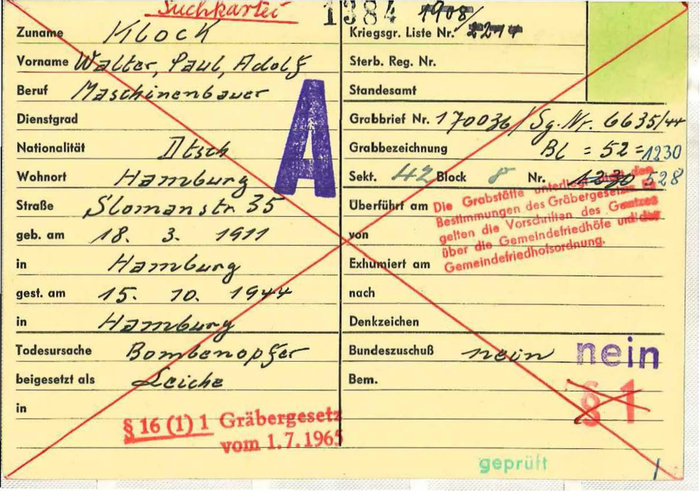 Suchkartei
1384
1908/
Zuname Klock
Kriegsgr. Liste Nr. 2214
Vorname Walter, Paul, Adolf
Sterb. Reg. Nr.
Beruf Maschinenbauer
Standesamt
Dienstgrad
Grabbrief Nr. 170036/Sg. Nr. 6635/44
Nationalität Dtsch
Grabbezeichnung Bl = 52 = 1230
A
Wohnort Hamburg
Sekt. 42 Block 8 Nr. 1230 528
Straße Slomanstr. 35
Überführt am
Die Grabstätte unterliegt
Bestimmungen des Gräbergesetzes
gelten die Vorschriften des Gesetzes
über die Gemeindefriedhöfe und der
Gemeindefriedhofsordnung.
geb. am 18. 3. 1911
von
in Hamburg
Exhumiert am
gest. am 15. 10. 1944
nach
in Hamburg
Denkzeichen
Todesursache Bombenopfer
Bundeszuschuß nein nein
beigesetzt als Leiche
Bem.
§ 1
in
§ 16 (1) 1 Gräbergesetz
vom 1.7.1965
geprüft